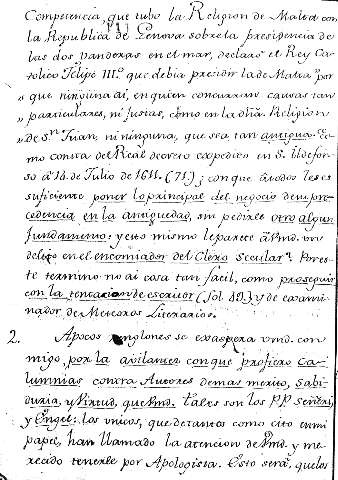 Competencia, que tubo la Religion de Malta con
la Republica de Genova sobre la presidencia de
las dos vanderas en el mar, declaró el Rey Ca-
tolico Felipe III.º que debia presidir la de Malta por
" que ninguna ai, en quien concurran causas tan
" particulares, ni justas, como en la dha Religion
" de S.n Juan, ni ninguna, que sea tan antigua. Co-
mo consta del Real decreto expedido en S. Ildefon-
so à 14. de Julio de 1611. (71.); conque à todos les es
suficiente poner lo principal del negocio de su pre-
cedencia en la antiguedad, sin pedirle otro algun
fundamento: y esto mismo le parece à Vmd. un
delito en el encomiador del Clero secular. Por es-
te termino no ai cosa tan facil, como proseguir
con la tentacion de escritor (fol. 49.) y de exami-
nador de Meritos Literarios.
2. A pocos renglones se exaspera Vmd. con
migo, por la avilantez con que profiero Ca-
lumnias contra Autores de mas merito, Sabi-
duria, y Virtud, que Vmd. Tales son los PP.
y Engel: los unicos, que de tantos como cito en mi
papel, han llamado la atencion de Vmd. y me-
recido tenerle por Apologista. Esto será, que los